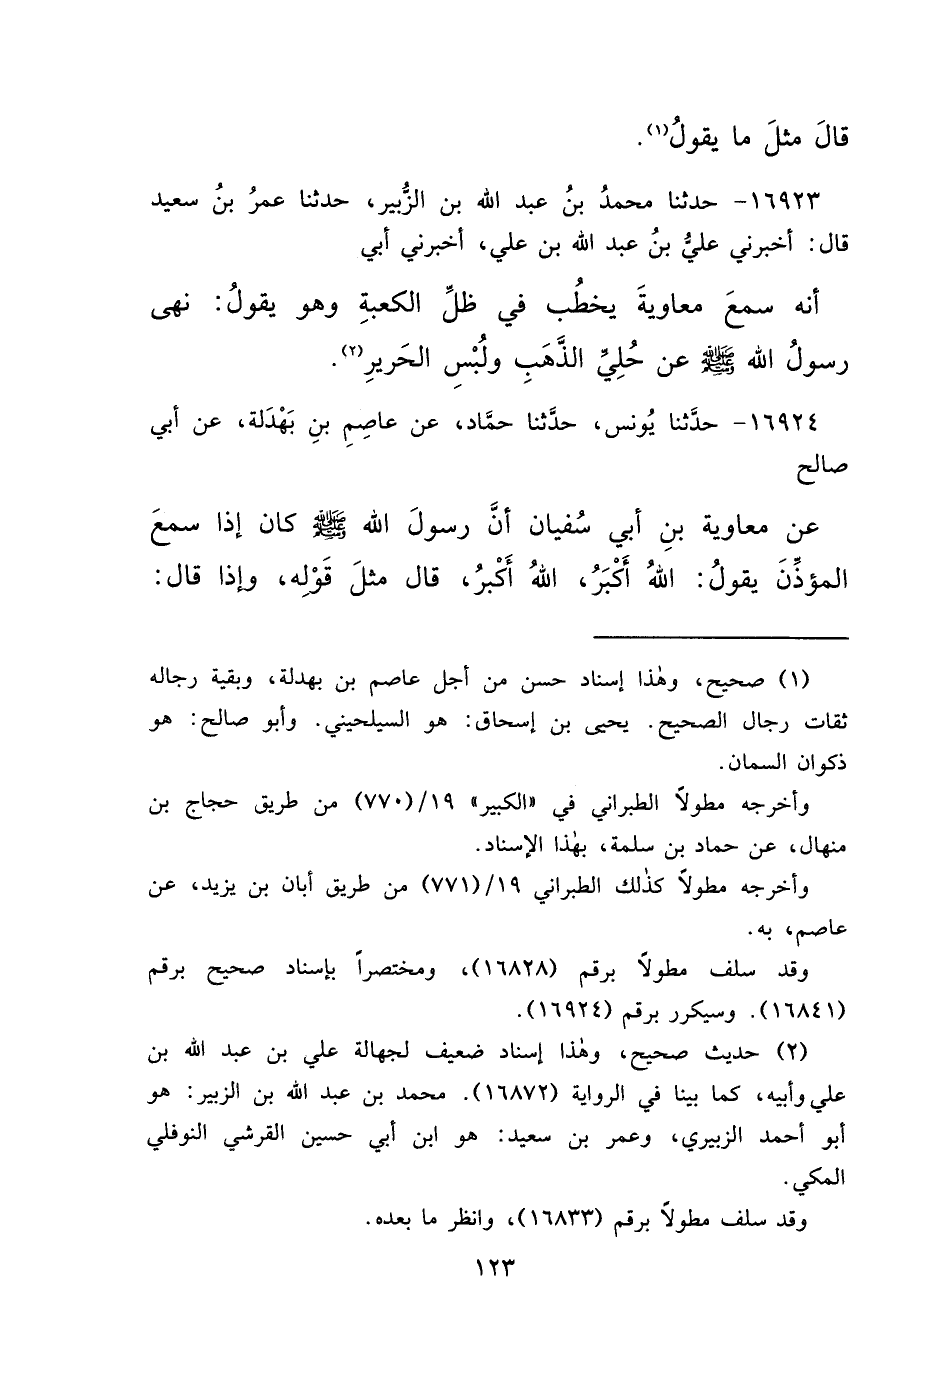 قالَ مثلَ ما يقولُ(١).
١٦٩٢٣- حدثنا محمدُ بنُ عبد الله بن الزُّبير، حدثنا عمرُ بنُ سعيد
قال: أخبرني عليُّ بنُ عبد الله بن علي، أخبرني أبي
أنه سمعَ معاويةَ يخطُب في ظلِّ الكعبةِ وهو يقولُ: نهى
رسولُ الله ﷺ عن حُلِيِّ الذَّهَبِ ولُبْسِ الحَريرِ(٢).
١٦٩٢٤- حدَّثنا يُونس، حدَّثنا حمَّاد، عن عاصِمِ بنِ بَهْدَلة، عن أبي
صالح
عن معاوية بنِ أبي سُفيان أنَّ رسولَ الله ﷺ كان إذا سمعَ
المؤذِّنَ يقولُ: اللهُ أَكْبَرُ، اللهُ أَكْبرُ، قال مثلَ قَوْلِه، وإذا قال:
(١) صحيح، وهٰذا إسناد حسن من أجل عاصم بن بهدلة، وبقية رجاله
ثقات رجال الصحيح. يحيى بن إسحاق: هو السيلحيني. وأبو صالح: هو
ذكوان السمان.
وأخرجه مطولاً الطبراني في «الكبير» ١٩/(٧٧٠) من طريق حجاج بن
منهال، عن حماد بن سلمة، بهٰذا الإسناد.
وأخرجه مطولاً كذٰلك الطبراني ١٩/(٧٧١) من طريق أبان بن يزيد، عن
عاصم، به.
وقد سلف مطولاً برقم (١٦٨٢٨)، ومختصراً بإسناد صحيح برقم
(١٦٨٤١). وسيكرر برقم (١٦٩٢٤).
(٢) حديث صحيح، وهٰذا إسناد ضعيف لجهالة علي بن عبد الله بن
علي وأبيه، كما بينا في الرواية (١٦٨٧٢). محمد بن عبد الله بن الزبير: هو
أبو أحمد الزبيري، وعمر بن سعيد: هو ابن أبي حسين القرشي النوفلي
المكي.
وقد سلف مطولاً برقم (١٦٨٣٣)، وانظر ما بعده.
١٢٣